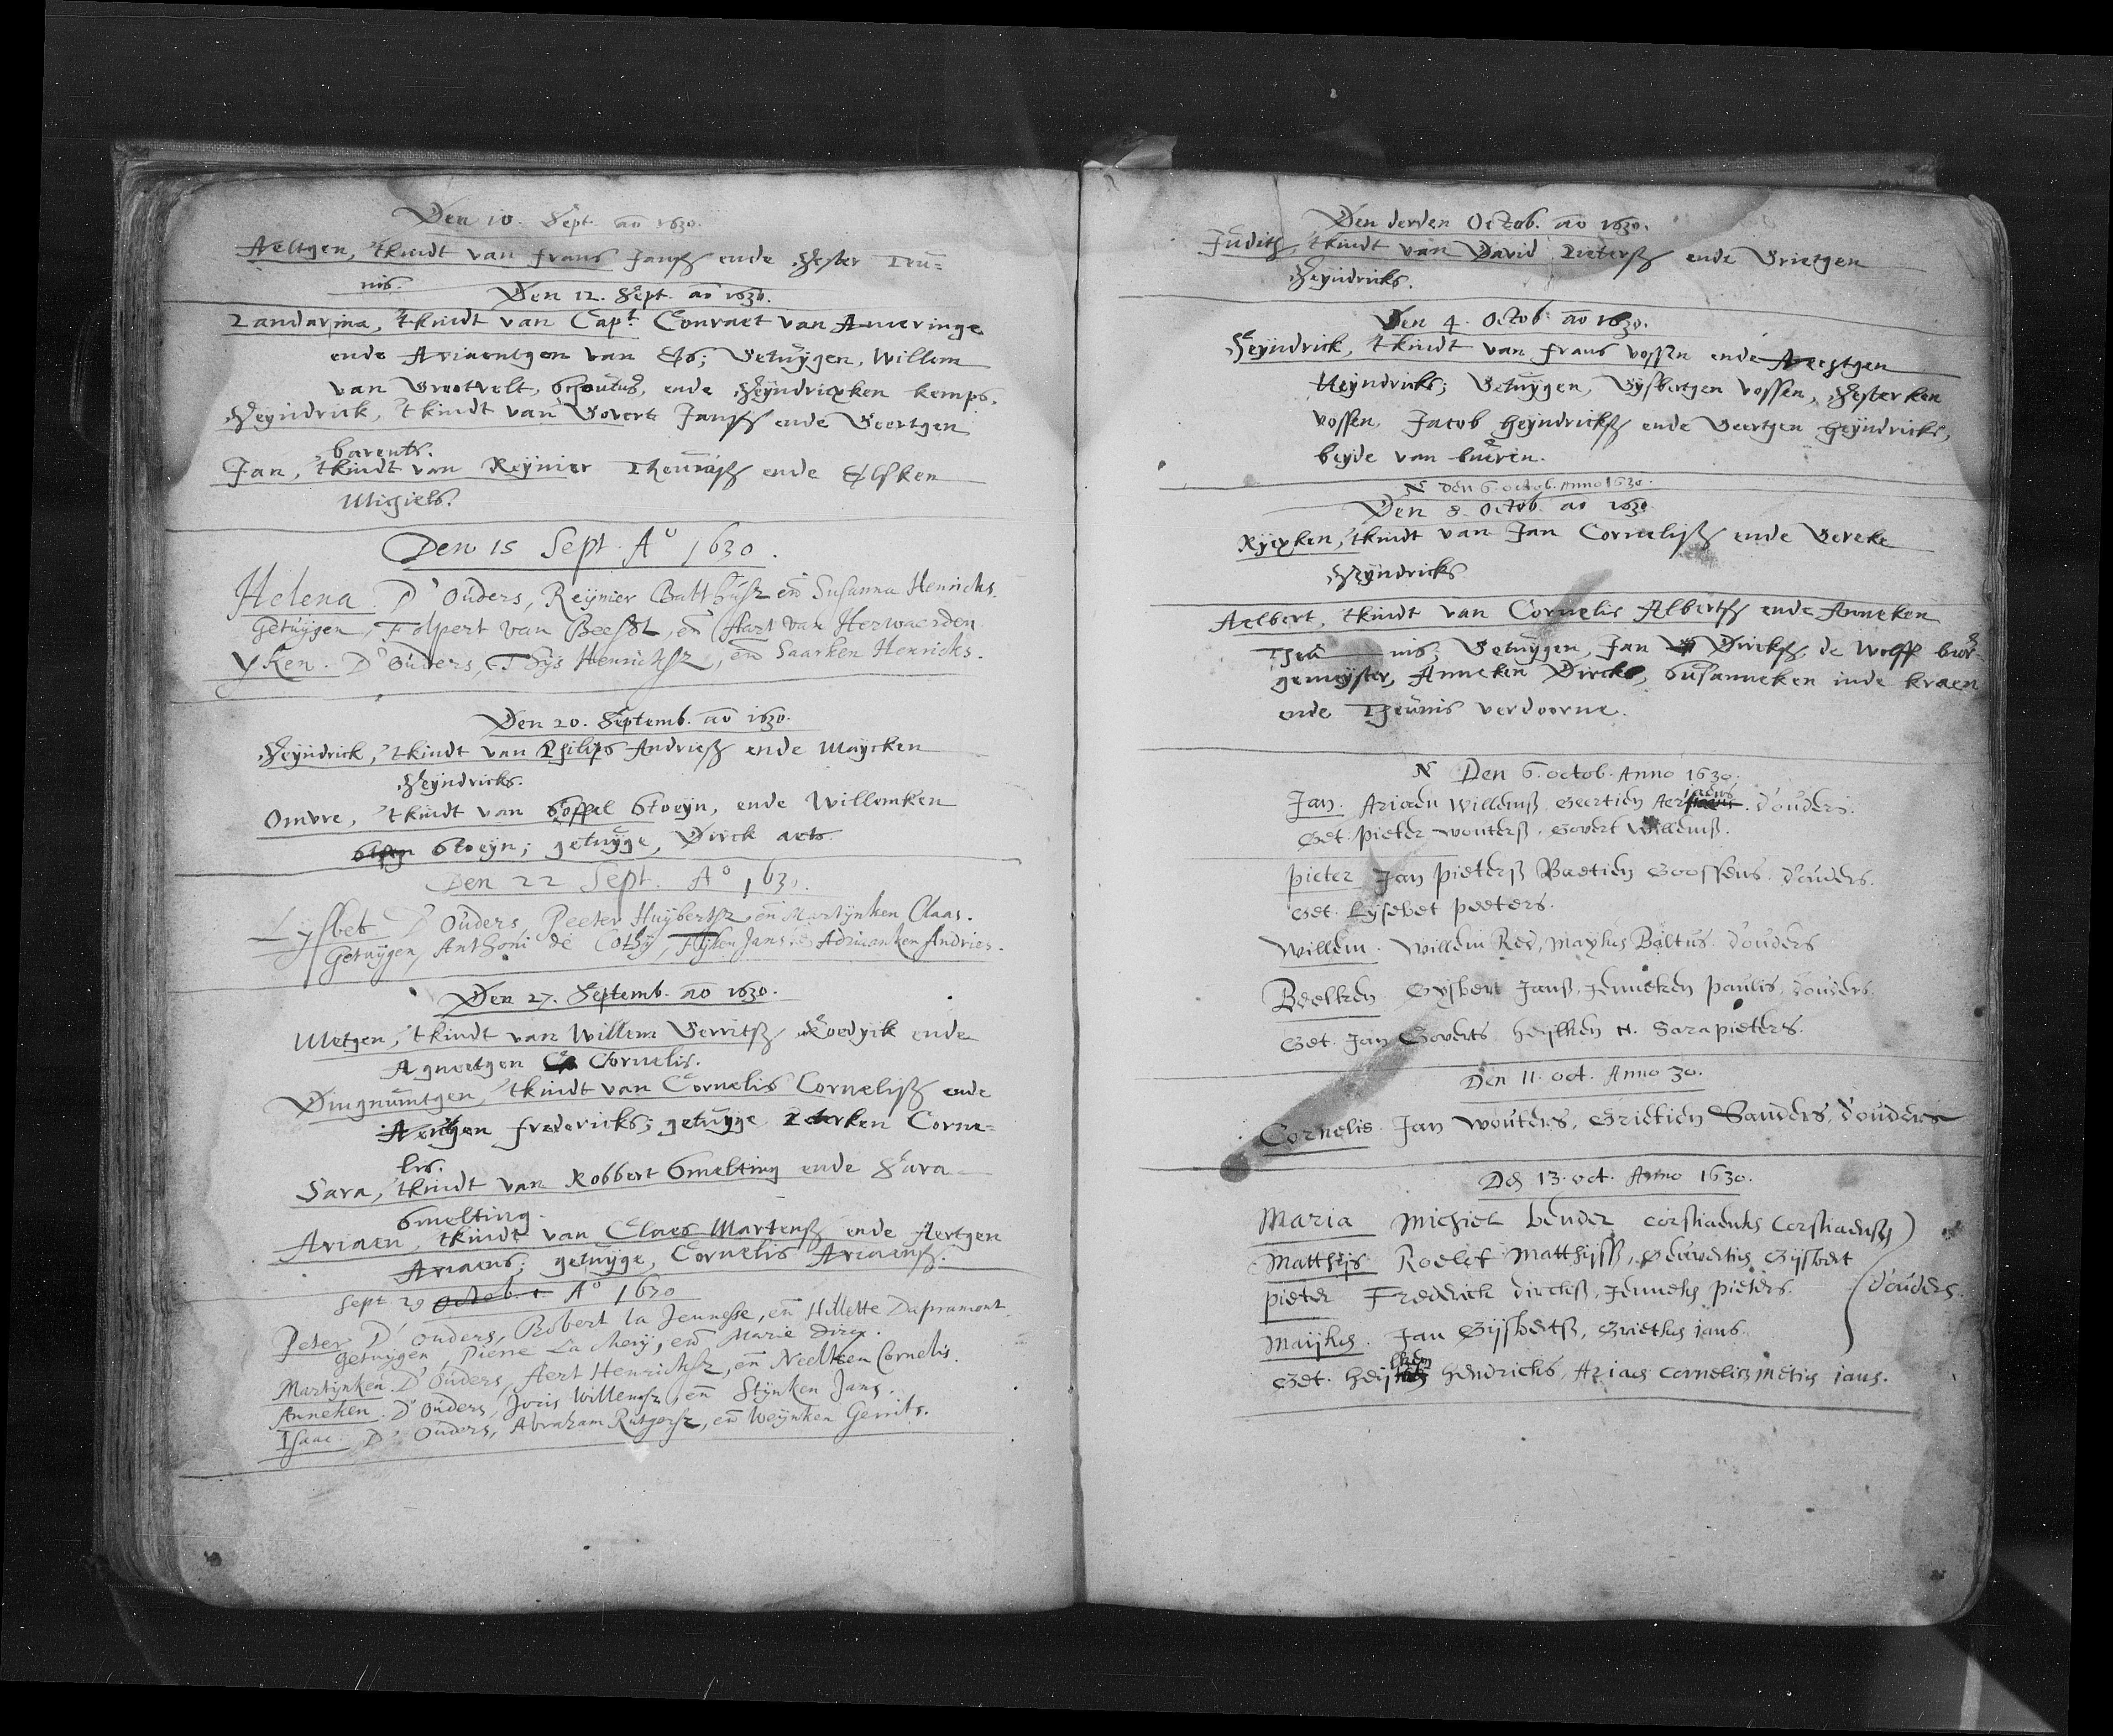 Den 10. Sept. ao 1630.
Aeltgen, 't kindt van frans Jansz ende Hester Teu=
nis.
Den 12. Sept. ao 1630.
Zandarina, 't kindt van Capt. Conraet van Ameringe
ende Ariaentgen van Es; Getuygen, Willem
van Grootvelt, Schoutus, ende Heyndricxken kemps.
Heyndrick, 't kindt van Govert Jansz ende Geertgen
barents.
Jan, 't kindt van Reynier Theunisz ende Elsken
Migiels.
Den 15 Sept. Ao 1630.
Helena. D'Ouders, Reynier Balthusz en Susanna Henricks.
Getuygen, Folpert van Beest, en Aart van Herwaerden.
Yken. D'Ouders, Thys Henricksz, en Saarken Henricks.
Den 20. Septemb. ao 1630.
Heyndrick, 't kindt van Philips Andriesz ende Maycken
Heyndricks.
Omvre, 't kindt van Stoffel Stoeyn, ende Willemken
Stoeyn; getuyge, Dirck aets.
Den 22 Sept. Ao 1630.
Lysbet D'Ouders, Peeter Huybertsz en Martynken Claas.
Getuygen, Anthoni de Cothy, Fyken Jans. en Adriaanken Andries.
Den 27. Septemb. ao 1630.
Metgen, 't kindt van Willem Gerritsz Roedyik ende
Agneetgen Cornelis.
Dingnumtgen, 't kindt van Cornelis Cornelisz ende
Aentgen fredericks; getuyge Peterken Corne=
lis.
Sara, 't kindt van Robbert Smelting ende Sara
Smelting.
Ariaen, 't kindt van Claes Martensz ende Aertgen
Ariaens; getuyge, Cornelis Ariaensz.
Sept. 29 Octob. Ao 1630
Peter D'ouders, Robert la Jeunesse, en Hillette Dapramont.
Getuygen, Pierre La Mery, en Marie Dirx.
Martynken. D'Ouders, Aert Henricksz, en Neeltken Cornelis.
Anneken. D'Ouders, Joris Willemsz, en Stynken Jans.
Isaac. D'Ouders, Abraham Rutgersz, en Weynken Gerrits.
Den derden Octob. ao 1630.
Judith, 't kindt van David Pietersz ende Grietgen
Heyndricks.
Den 4. Octob. ao 1630.
Heyndrick, 't kindt van frans vossen ende Aechtgen
Heyndricks; Getuygen, Gysbertgen vossen, Hesterken
vossen, Jacob Heyndricksz ende Geertgen heyndricks,
beyde van bueren.
N den 6. octob. Anno 1630.
Den 8. Octob. ao 1630
Ryexken, 't kindt van Jan Cornelisz ende Gereke
Heyndricks
Aelbert, 't kindt van Cornelis Albertsz ende Anneken
Theunis; Getuygen, Jan Dircksz de Wolff bur=
gemeyster, Anneken Dircks, Susanneken inde kraen
ende Theunis verdoorne.
N Den 6. octob. Anno 1630.
Jan. Ariaen Willemsz. Geertien Aer iaens d'ouders.
Get. pieter wouterss. Govert Willemsz.
pieter Jan pieterss Baetien Goossens. d'ouders.
Get. Lysebet peeters.
Willem. Willem Red, Mayken Baltus. d'ouders
Beelken Gysbert Jansz. Jenneken paulis, d'ouders.
Get. Jan Goverts heylken N. Sara pieters.
Den 11. oct. Anno 30.
Cornelis Jan wouters, Grietien Sanders, d'ouders
Den 13. oct. Anno 1630.
Maria Michiel bender corstiaenken Corstiaensz
Matthijs. Roelof Matthijss, Gerwertien Gijsbert
pieter Frederick dircksz, Jenneken pieters. d'ouders
Maijken. Jan Gijsbertsz, Grietken ians.
Get. heijlken hendricks, Ariaen Cornelisz Metien ians.